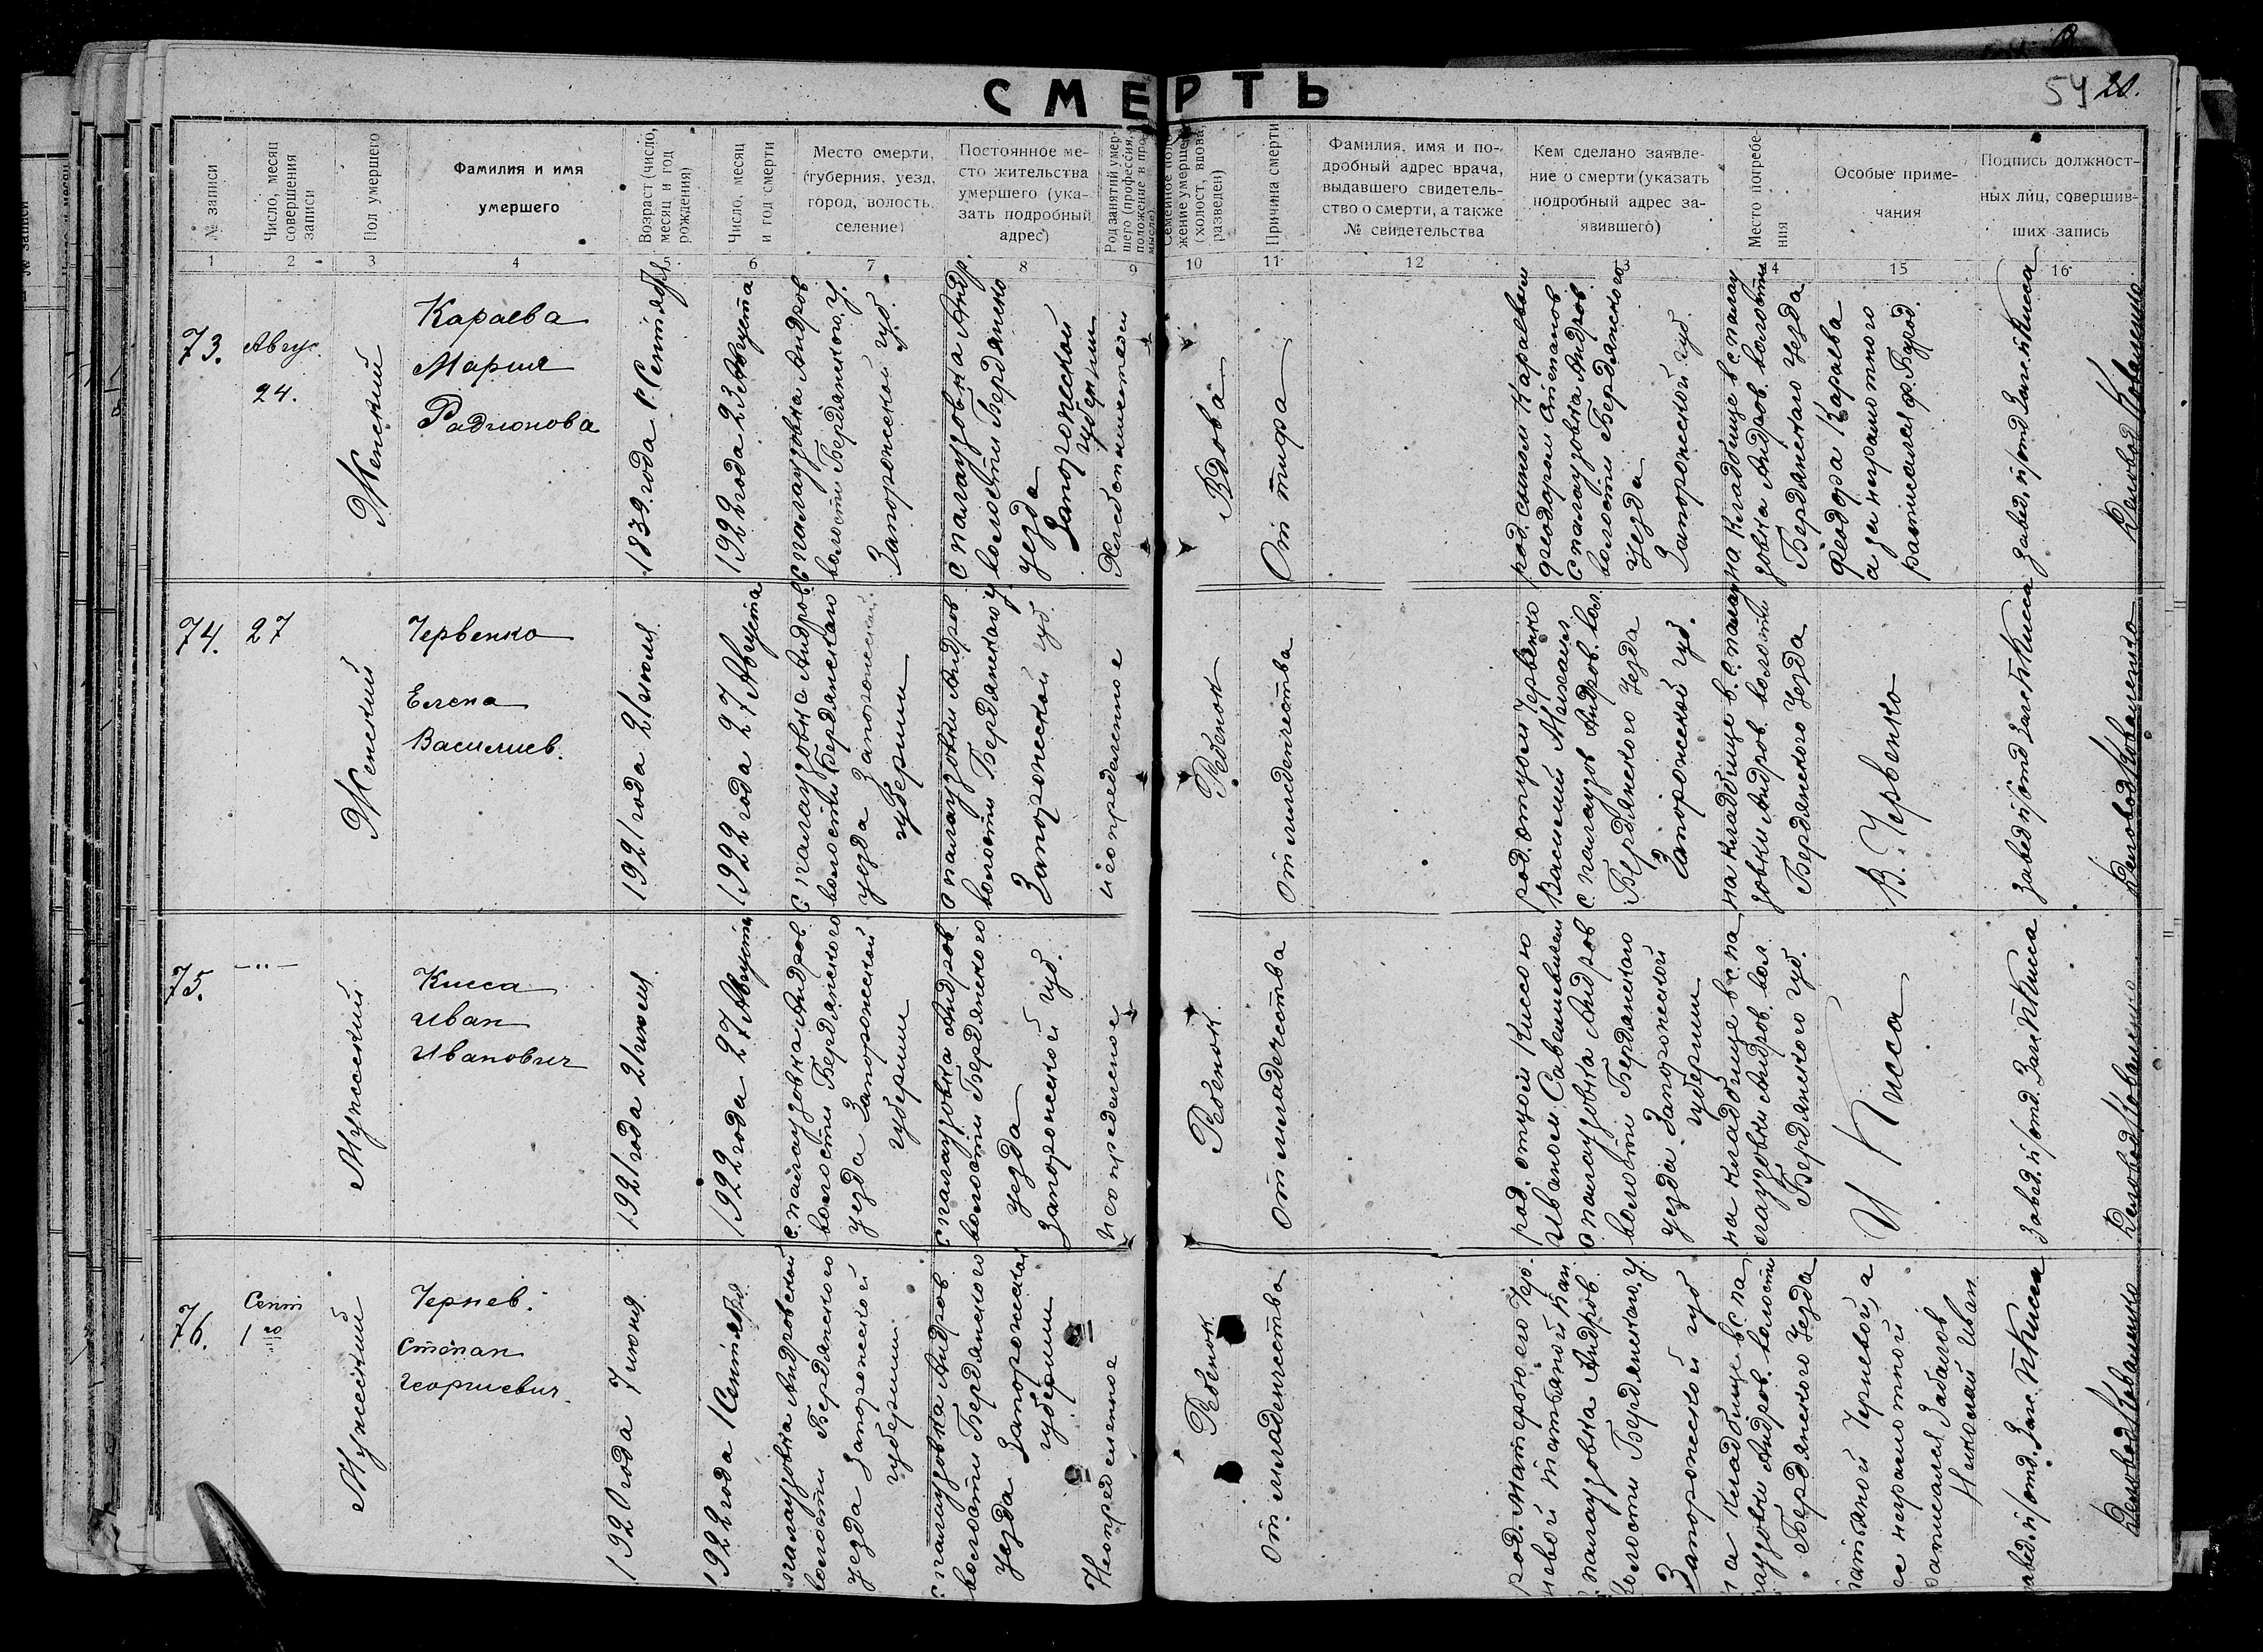 СМЕРТЬ
54 20.
№ записи
Число, месяц
совершения
записи
Пол умершего
Фамилия и имя
умершего
Возраст (число,
месяц и год
рождения)
Число, месяц
и год смерти
Место смерти,
(губерния, уезд,
город, волость,
селение)
Постоянное ме-
сто жительства
умершего (ука-
зать подробный
адрес)
Род занятий умер-
шего (профессия,
положение в про-
мысле)
Семейное поло-
жение умершего
(холост, вдова,
разведен)
Причина смерти
Фамилия, имя и по-
дробный адрес врача,
выдавшего свидетель-
ство о смерти, а также
№ свидетельства
Кем сделано заявле-
ние о смерти (указать
подробный адрес за-
явившего)
Место погребе-
ния
Особые приме-
чания
Подпись должност-
ных лиц, совершив-
ших запись
1 2 3 4 5 6 7 8 9 10 11 12 13 14 15 16
73.
Авгус.
24.
Женский
Караева
Мария
Радионова
1839 года
1922 года 23 Августа
с палаузовка Андров
волости Бердянского у.
Запорожской губ.
с палаузовка Андр.
волости Бердянско
уезда
Запорожской
губернии
Хлебопашество
Вдова
От тифа
род. сыном Караевым
Феодором Степанов
с палаузовка Андров.
волости Бердянского
уезда
Запорожской губ.
на кладбище в с. палау
зовка Андров. волости
Бердянского Уезда
Феодора Караева
а за неграмотного
расписался
завед. п/отд Загс. Кисса
Деловод Коваленко
74.
27
Женский
Червенко
Елена
Василиев.
1921 года 21 июля
1922 года 27 Августа
с палаузовка Андров
волости Бердянского
уезда Запорожской
губернии
с палаузовки Андров
волости Бердянского у
Запорожской губ.
неопределенное
Ребенок
от младенчества
род. отцом Червенко
Василий Михаил
с палаузов Андров. вол.
Бердянского Уезда
Запорожской губ.
на кладбище в с. палау
зовки Андров. волости
Бердянского Уезда
В. Червенко
завед п/отд Загс Кисса
Деловод Коваленко
75.
—"—
Мужеский
Кисса
Иван
Иванович
1921 года 21 июля
1922 года 27 Августа
с. палаузовка Андров
волости Бердянского
уезда Запорожской
губернии
с палаузовка Андров
волости Бердянского
уезда
Запорожской губ.
неопределенное
Ребенок
от младенчества
род. отцом Киссою
Иваном Савельевичем
с палаузовка Андров
волости Бердянского
уезда Запорожской
губернии
на кладбище в с. па
лаузовки Андров. вол.
Бердянского губ.
И Кисса
Завед. п/отд. Загс Кисса
Деловод Коваленко
76.
Сент
1го
Мужеский
Чернев.
Степан
Георгиевич
1920 года 7 июня
1922 года 1 Сентября
палаузовка Андровской
волости Бердянского
уезда Запорожской
губернии
с палаузовка Андров
волости Бердянского
уезда Запорожская
губернии
Неопределенное
Ребенок
от младенчества
род. матерью его Чер
невой Татьяной
с. палаузовка Андров.
волости Бердянского у
Запорожской губ
на кладбище в с па
лаузовки Андров. волости
Бердянского Уезда
Татьяной Черневой, а
неграмотной
расписался Забалов
Николай Иван
завед. п/отд. Загс. Кисса
Деловод Коваленко